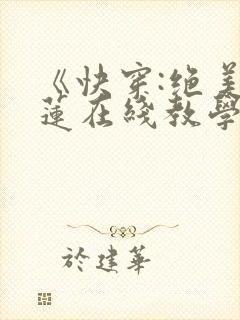 《快穿:绝美
莲在线教学
於建華